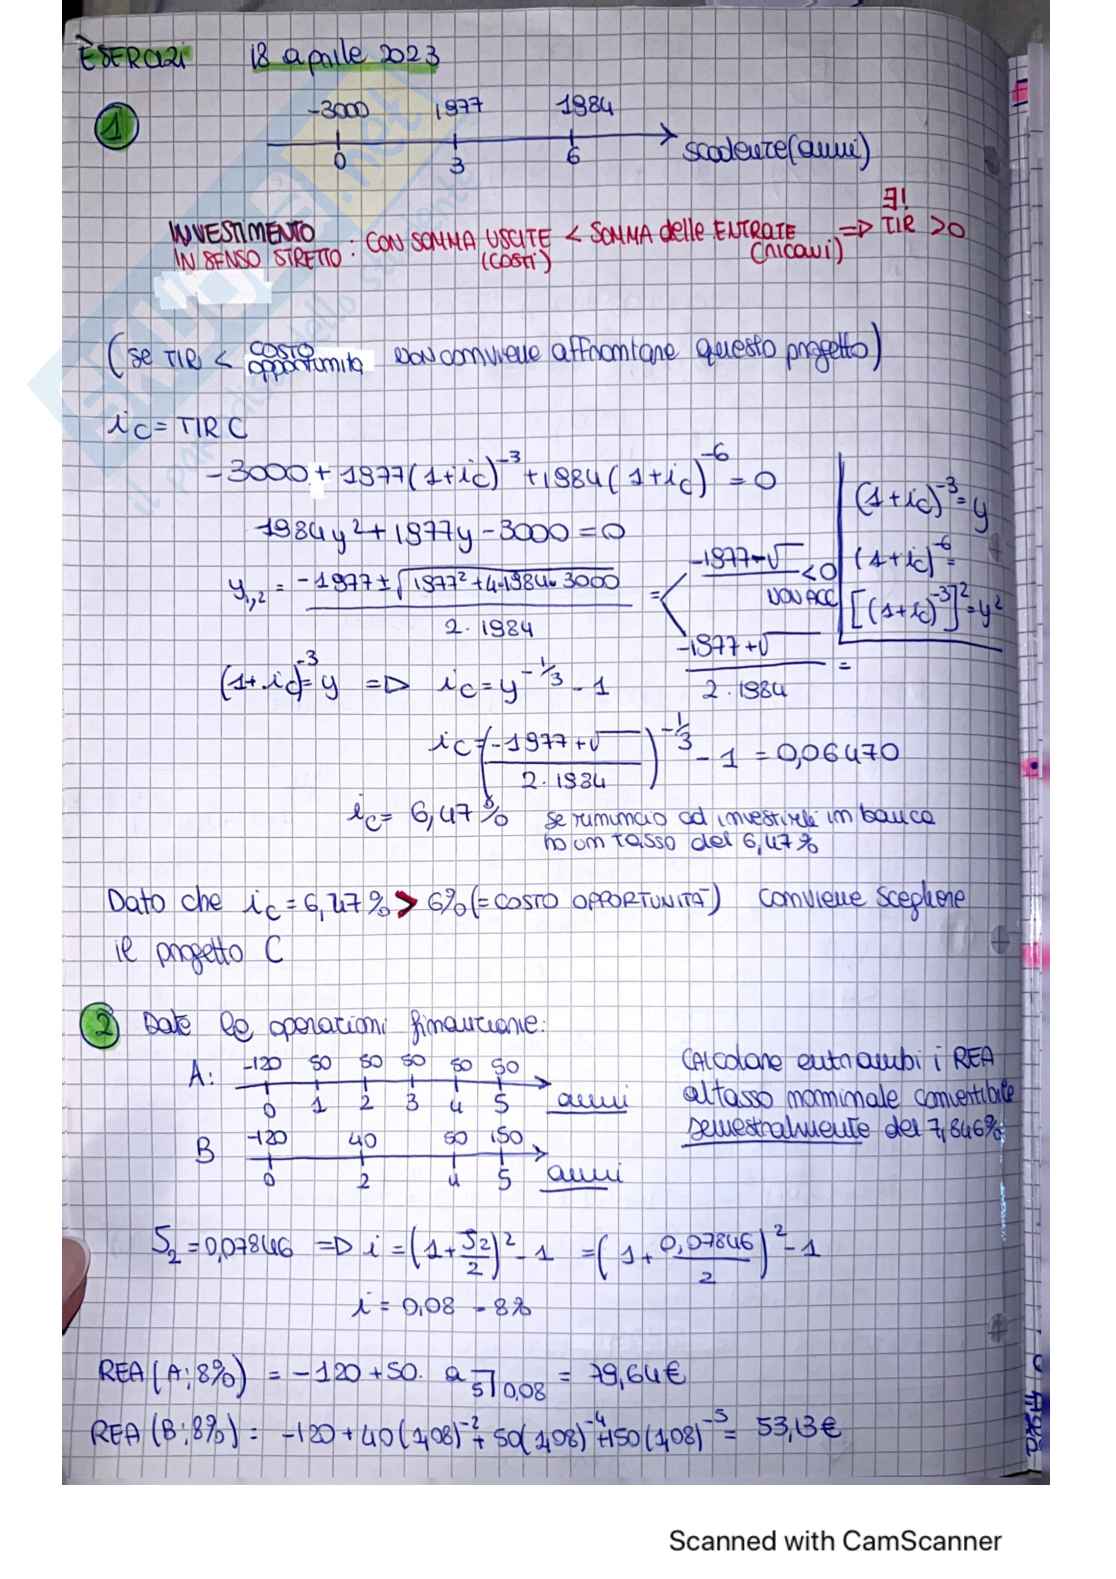 ESERCIZI 18 aprile 2023
1
-3000 1977 1984
0 3 6 scadenze (anni)
INVESTIMENTO IN SENSO STRETTO: CON SOMMA USCITE (COSTI) < SOMMA delle ENTRATE (ricavi) => ∃! TIR > 0
(se TIR < COSTO opportunità non conviene affrontare questo progetto)
ic = TIR C
-3000 + 1977(1+ic)^-3 + 1984(1+ic)^-6 = 0
(1+ic)^-3 = y
1984y² + 1977y - 3000 = 0
(1+ic)^-6 = [(1+ic)^-3]² = y²
y1,2 = (-1977 ± √(1977² + 4·1984·3000)) / (2·1984) =
-1977-√ < 0 NON ACC
(-1977+√) / (2·1984) =
(1+ic)^-3 = y => ic = y^(-1/3) - 1
ic = ((-1977+√) / (2·1984))^(-1/3) - 1 = 0,06470
ic = 6,47% se rinuncio ad investirli in banca
ho un tasso del 6,47%
Dato che ic = 6,47% > 6% (= COSTO OPPORTUNITÀ) conviene scegliere
il progetto C
2 Date le operazioni finanziarie:
A: -120 50 50 50 50 50
0 1 2 3 4 5 anni
B -120 40 50 150
0 2 4 5 anni
CALCOLARE entrambi i REA
al tasso nominale convertibile
semestralmente del 7,846%
S2 = 0,07846 => i = (1 + S2/2)² - 1 = (1 + 0,07846/2)² - 1
i = 0,08 - 8%
REA (A; 8%) = -120 + 50 · a5⌉0,08 = 79,64€
REA (B; 8%) = -120 + 40(1,08)^-2 + 50(1,08)^-4 + 150(1,08)^-5 = 53,13€
Scanned with CamScanner